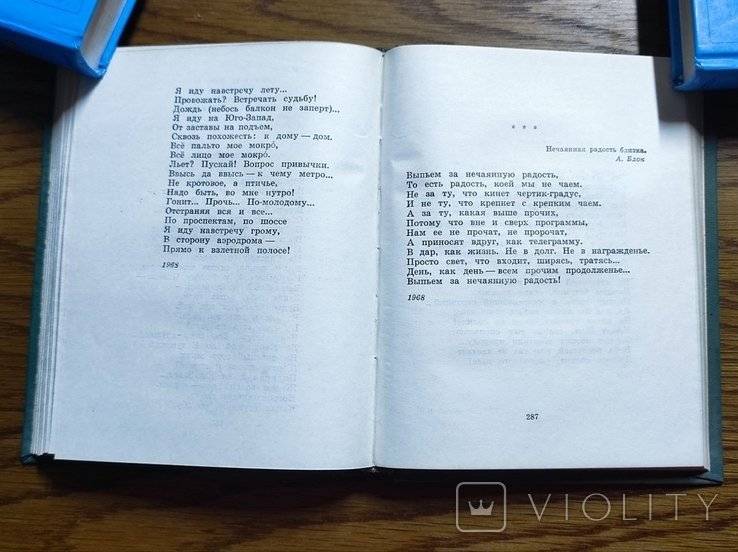 Я иду навстречу лету...
Провожать? Встречать судьбу!
Дождь (небось балкон не заперт)...
Я иду на Юго-Запад,
От заставы на подъем,
Сквозь похожесть: к дому — дом.
Всё пальто мое мокро́,
Всё лицо мое мокро́.
Льет? Пускай! Вопрос привычки.
Ввысь да ввысь — к чему метро...
Не кротовое, а птичье,
Надо быть, во мне нутро!
Гонит... Прочь... По-молодому...
Отстраняя вся и все...
По проспектам, по шоссе
Я иду навстречу грому,
В сторону аэродрома —
Прямо к взлетной полосе!
1968
* * *
Нечаянная радость близка.
А. Блок
Выпьем за нечаянную радость,
То есть радость, коей мы не чаем.
Не за ту, что кинет чертик-градус,
И не ту, что крепнет с крепким чаем.
А за ту, какая выше прочих,
Потому что вне и сверх программы,
Нам ее не прочат, не пророчат,
А приносят вдруг, как телеграмму.
В дар, как жизнь. Не в долг. Не в награжденье.
Просто свет, что входит, ширясь, тратясь...
День, как день — всем прочим продолженье...
Выпьем за нечаянную радость!
1968
287
VIOLITY